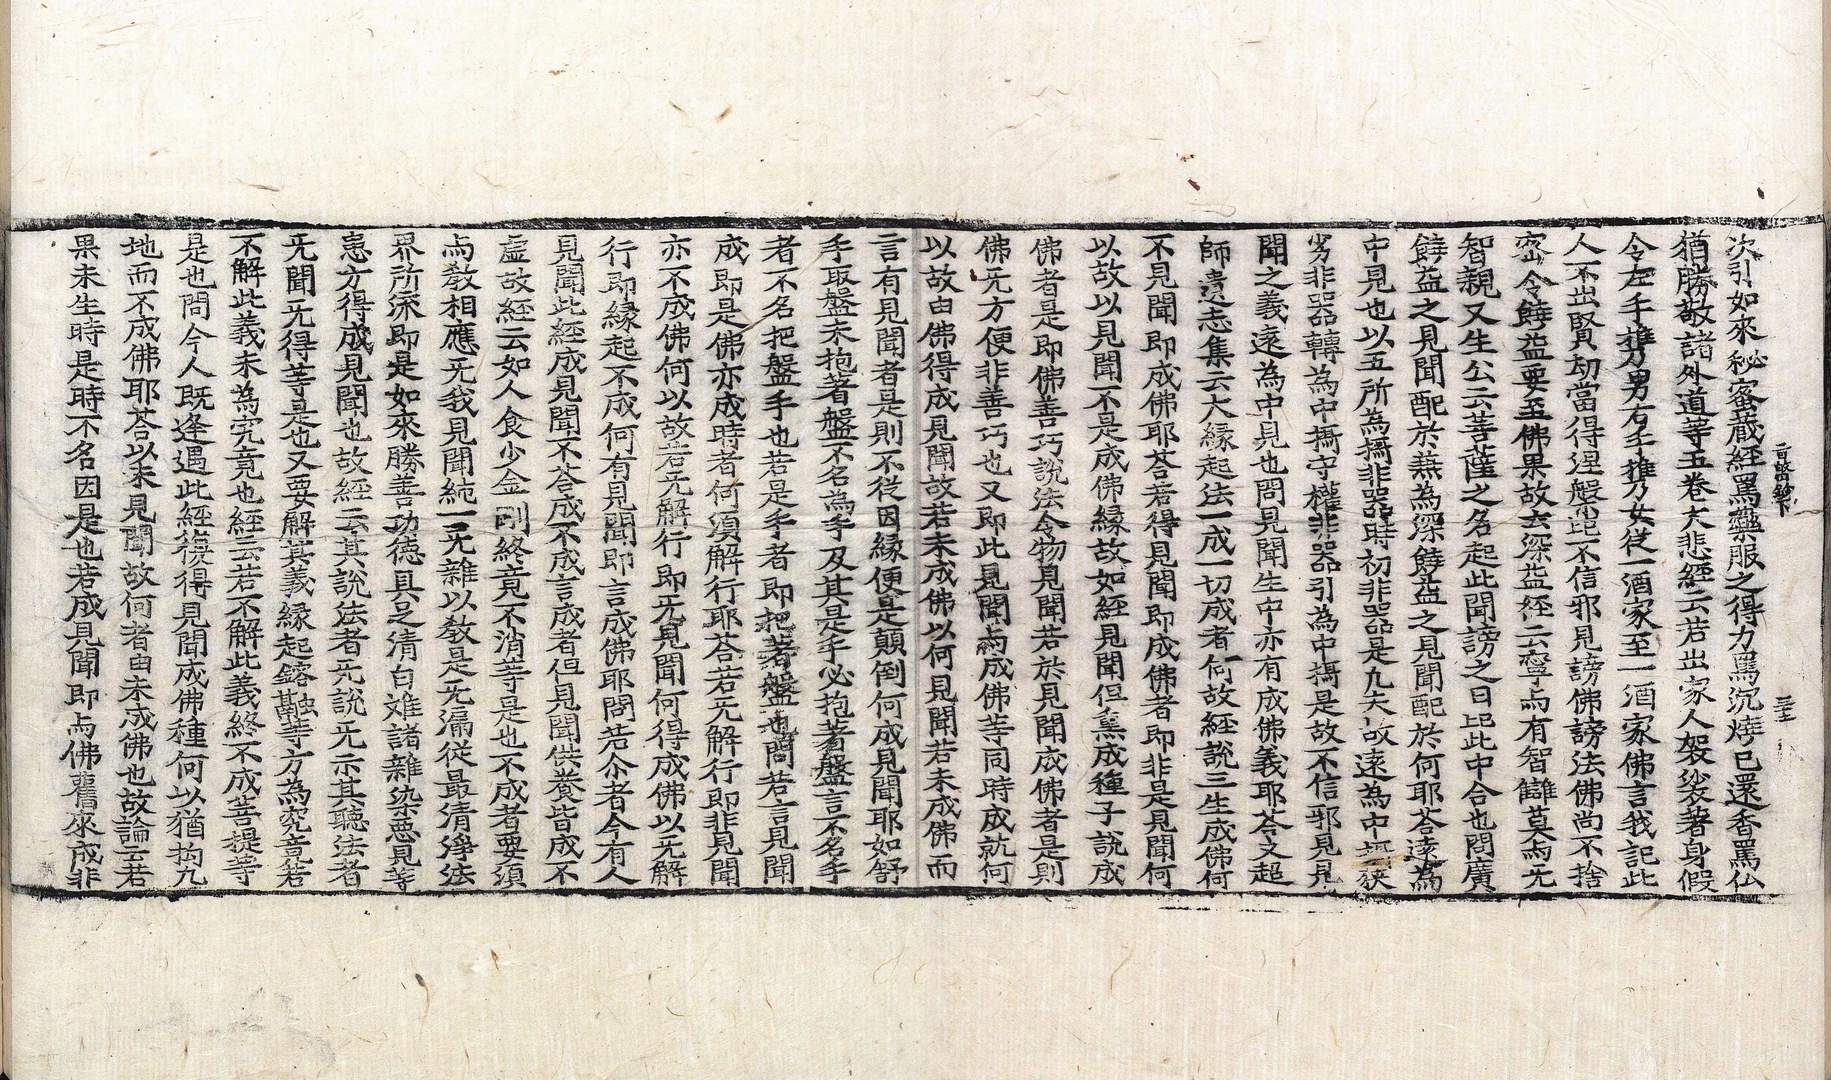 次引如來秘密蔵經罵藥服之得力罵沉燒已還香罵仏
猶勝敬諸外道等五卷大悲經云若出家人袈裟著身假
令左手推男右手推女從一酒家至一酒家佛言我記此
人不出賢劫當得涅盤此不信邪見謗佛謗法佛尚不捨
密令饒益要至佛果故云深益經云寧与有智讎莫与无
智親又生公云菩薩之名起此聞謗之日此中合也問廣
饒益之見聞配於熏為深饒益之見聞配於何耶荅遠為
中見也以五所為攝非器時初非器是九夫故遠為中攝狹
劣非器轉為中攝守權非器引為中攝是故不信邪見見
聞之義遠為中見也問見聞生中亦有成佛義耶荅又超
師遺志集云大緣起法一成一切成者何故經說三生成佛何
不見聞即成佛耶荅若得見聞即成佛者即非是見聞何
以故以見聞不是成佛緣故如經見聞但熏成種子說成
佛者是即佛善巧說法令物見聞若於見聞成佛者是則
佛无方便非善巧也又即此見聞与成佛等同時成就何
以故由佛得成見聞故若未成佛以何見聞若未成佛而
言有見聞者是則不從因緣便是顛倒何成見聞耶如舒
手取盤未抱著盤不名為手及其是手必抱著盤言不名手
者不名把盤手也若是手者即把著盤也問若言見聞
成即是佛亦成時者何須解行耶荅若无解行即非見聞
亦不成佛何以故若无解行即无見聞何得成佛以无解
行即緣起不成何有見聞即言成佛耶問若尒者今有人
見聞此經成見聞不荅成不成言成者但見聞供養皆成不
虛故經云如人食少金剛終竟不消等是也不成者要須
与教相應无我見聞純一无雜以教是无漏從最清淨法
界所流即是如來勝善功德具足清白难諸雜染惡見等
患方得成見聞也故經云其說法者无說无示其聽法者
无聞无得等是也又要解其義緣起鎔融等方為究竟若
不解此義未為究竟也經云若不解此義終不成菩提等
是也問今人既逢遇此經復得見聞成佛種何以猶拘九
地而不成佛耶荅以未見聞故何者由未成佛也故論云若
果未生時是時不名因是也若成見聞即与佛舊來成非